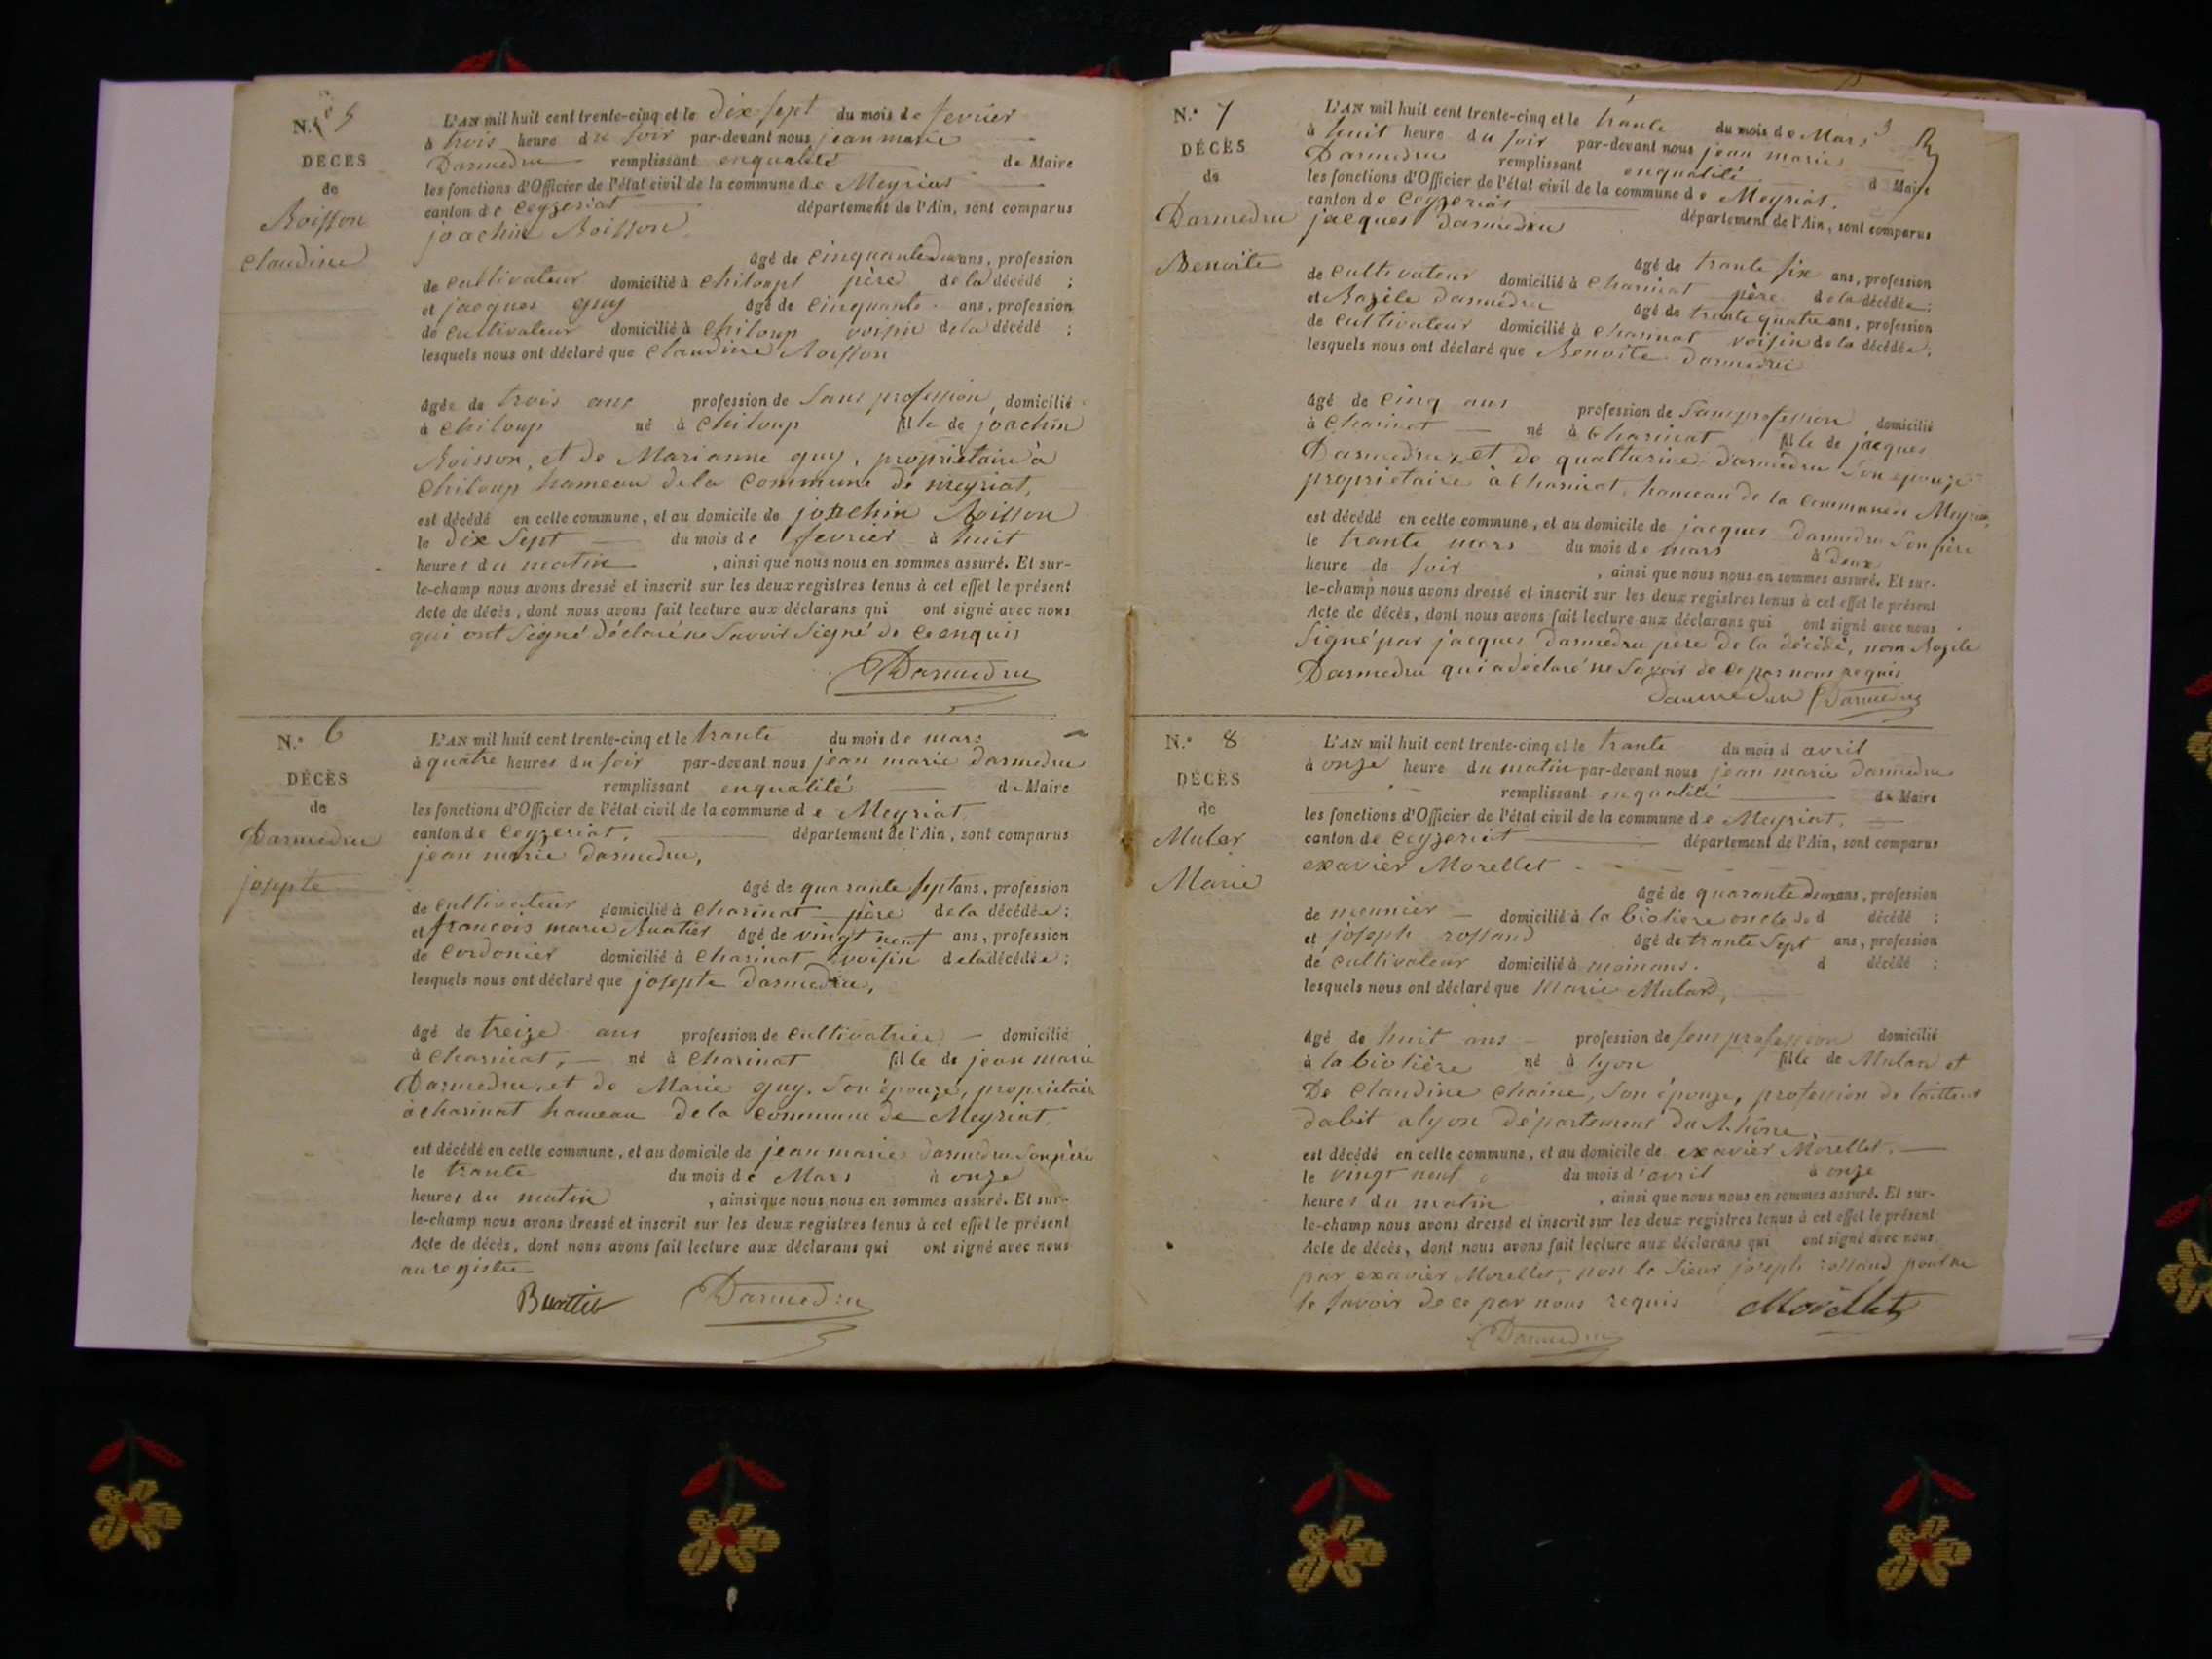 N.º 5
DÉCÈS
de
Boisson
Claudine
L'AN mil huit cent trente-cinq et le dix sept du mois de fevrier
à trois heure du soir par-devant nous jean marie
Darmedru remplissant enqualité de Maire
les fonctions d'Officier de l'état civil de la commune de Meyriat
canton de Ceyzeriat département de l'Ain, sont comparus
joachin Boisson
âgé de cinquante deux ans, profession
de cultivateur domicilié à Chiloupt père de la décédé ;
et jacques guy âgé de cinquante ans, profession
de cultivateur domicilié à Chiloup voisin de la décédé ;
lesquels nous ont déclaré que Claudine Boisson
âgée de trois ans profession de sans profession, domicilié
à Chiloup né à Chiloup fille de joachin
Boisson, et de Marianne guy, propriétaire à
Chiloup hameau dela Commune de meyriat,
est décédé en cette commune, et au domicile de joachin Boisson
le dix sept du mois de fevrier à huit
heures du matin , ainsi que nous nous en sommes assuré. Et sur-
le-champ nous avons dressé et inscrit sur les deux registres tenus à cet effet le présent
Acte de décès, dont nous avons fait lecture aux déclarans qui ont signé avec nous
qui ont signé déclaré ne savoir signé de ce enquis
Darmedru
N.º 6
DÉCÈS
de
Darmedru
josepte
L'AN mil huit cent trente-cinq et le trante du mois de mars
à quatre heures du soir par-devant nous jean marie darmedru
remplissant enqualité de Maire
les fonctions d'Officier de l'état civil de la commune de Meyriat
canton de Ceyzeriat. département de l'Ain, sont comparus
jean marie darmedru,
âgé de quarante sept ans, profession
de cultivateur domicilié à Charinat père de la décédée ;
et francois marie Buatier âgé de vingt neuf ans, profession
de Cordonier domicilié à Charinat voisin de la décédée ;
lesquels nous ont déclaré que josepte darmedru,
âgé de treize ans profession de cultivatrice domicilié
à Charinat, né à Charinat fille de jean marie
Darmedru, et de Marie guy. son épouze, propriétair
à charinat hameau dela commune de Meyriat,
est décédé en cette commune, et au domicile de jean marie darmedru son père
le trante du mois de Mars à onze
heures du matin , ainsi que nous nous en sommes assuré. Et sur-
le-champ nous avons dressé et inscrit sur les deux registres tenus à cet effet le présent
Acte de décès, dont nous avons fait lecture aux déclarans qui ont signé avec nous
au registre
Buattier Darmedru
N.º 7
DÉCÈS
de
Darmedru
Benoite
L'AN mil huit cent trente-cinq et le trante du mois de Mars 3
à huit heure du soir par-devant nous jean marie
Darmedru remplissant enqualité d Maire
les fonctions d'Officier de l'état civil de la commune de Meyriat.
canton de Ceyzeriat département de l'Ain, sont comparus
jacques darmedru
âgé de trante six ans, profession
de cultivateur domicilié à Charinat père de la décédée ;
et Bazile darmedru âgé de trante quatre ans, profession
de cultivateur domicilié à Charinat voisin de la décédée ;
lesquels nous ont déclaré que Benoite darmedru
âgé de cinq ans profession de sans profession domicilié
à Charinat né à Charinat fille de jacques
Darmedru, et de quatherine darmedru son epouze
propriétaire à Charinat, hameau de la commune de Meyriat,
est décédé en cette commune, et au domicile de jacques darmedru son père
le trante mars du mois de mars à deux
heure de soir , ainsi que nous nous en sommes assuré. Et sur-
le-champ nous avons dressé et inscrit sur les deux registres tenus à cet effet le présent
Acte de décès, dont nous avons fait lecture aux déclarans qui ont signé avec nous
signé par jacques darmedru père de la décédé, nom Bazile
Darmedru qui a déclaré ne savoir de ce par nous requis
darmedru Darmedru
N.º 8
DÉCÈS
de
Muler
Marie
L'AN mil huit cent trente-cinq et le trante du mois d avril
à onze heure du matin par-devant nous jean marie darmedru
remplissant enqualité de Maire
les fonctions d'Officier de l'état civil de la commune de Meyriat.
canton de Ceyzeriat département de l'Ain, sont comparus
exavier Morellet
âgé de quarante deux ans, profession
de meunier domicilié à la biotiere oncle de d décédé ;
et joseph rolland âgé de trante sept ans, profession
de cultivateur domicilié à d décédé ;
lesquels nous ont déclaré que Marie Mulard,
âgé de huit ans profession de sens profession domicilié
à la biotière né à lyon fille de Mulard et
De Claudine Chaine, son épouze, profession de tailleur
dabit a lyon département du Rhône,
est décédé en cette commune, et au domicile de exavier Morellet.
le vingt neuf du mois d'avril à onze
heures du matin , ainsi que nous nous en sommes assuré. Et sur-
le-champ nous avons dressé et inscrit sur les deux registres tenus à cet effet le présent
Acte de décès, dont nous avons fait lecture aux déclarans qui ont signé avec nous
par exavier Morellet, non le sieur joseph rolland pour ne
le savoir de ce par nous requis Morellet
Darmedru